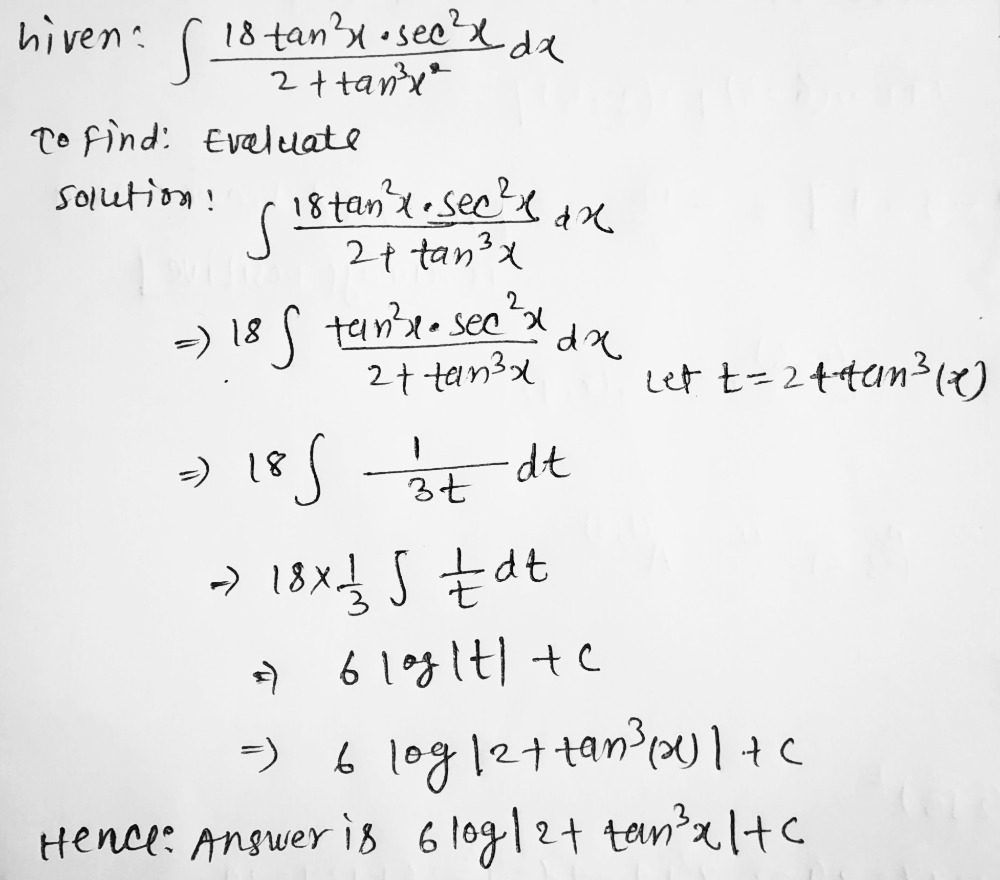 Given: ∫ 18 tan²x · sec²x / 2 + tan³x² dx
To find: Evaluate
Solution: ∫ 18 tan²x · sec²x / 2 + tan³x dx
=> 18 ∫ tan²x · sec²x / 2 + tan³x dx Let t = 2 + tan³(x)
=> 18 ∫ 1 / 3t dt
=> 18 × 1/3 ∫ 1/t dt
=> 6 log |t| + c
=> 6 log |2 + tan³(x)| + c
Hence: Answer is 6 log | 2 + tan³x | + c